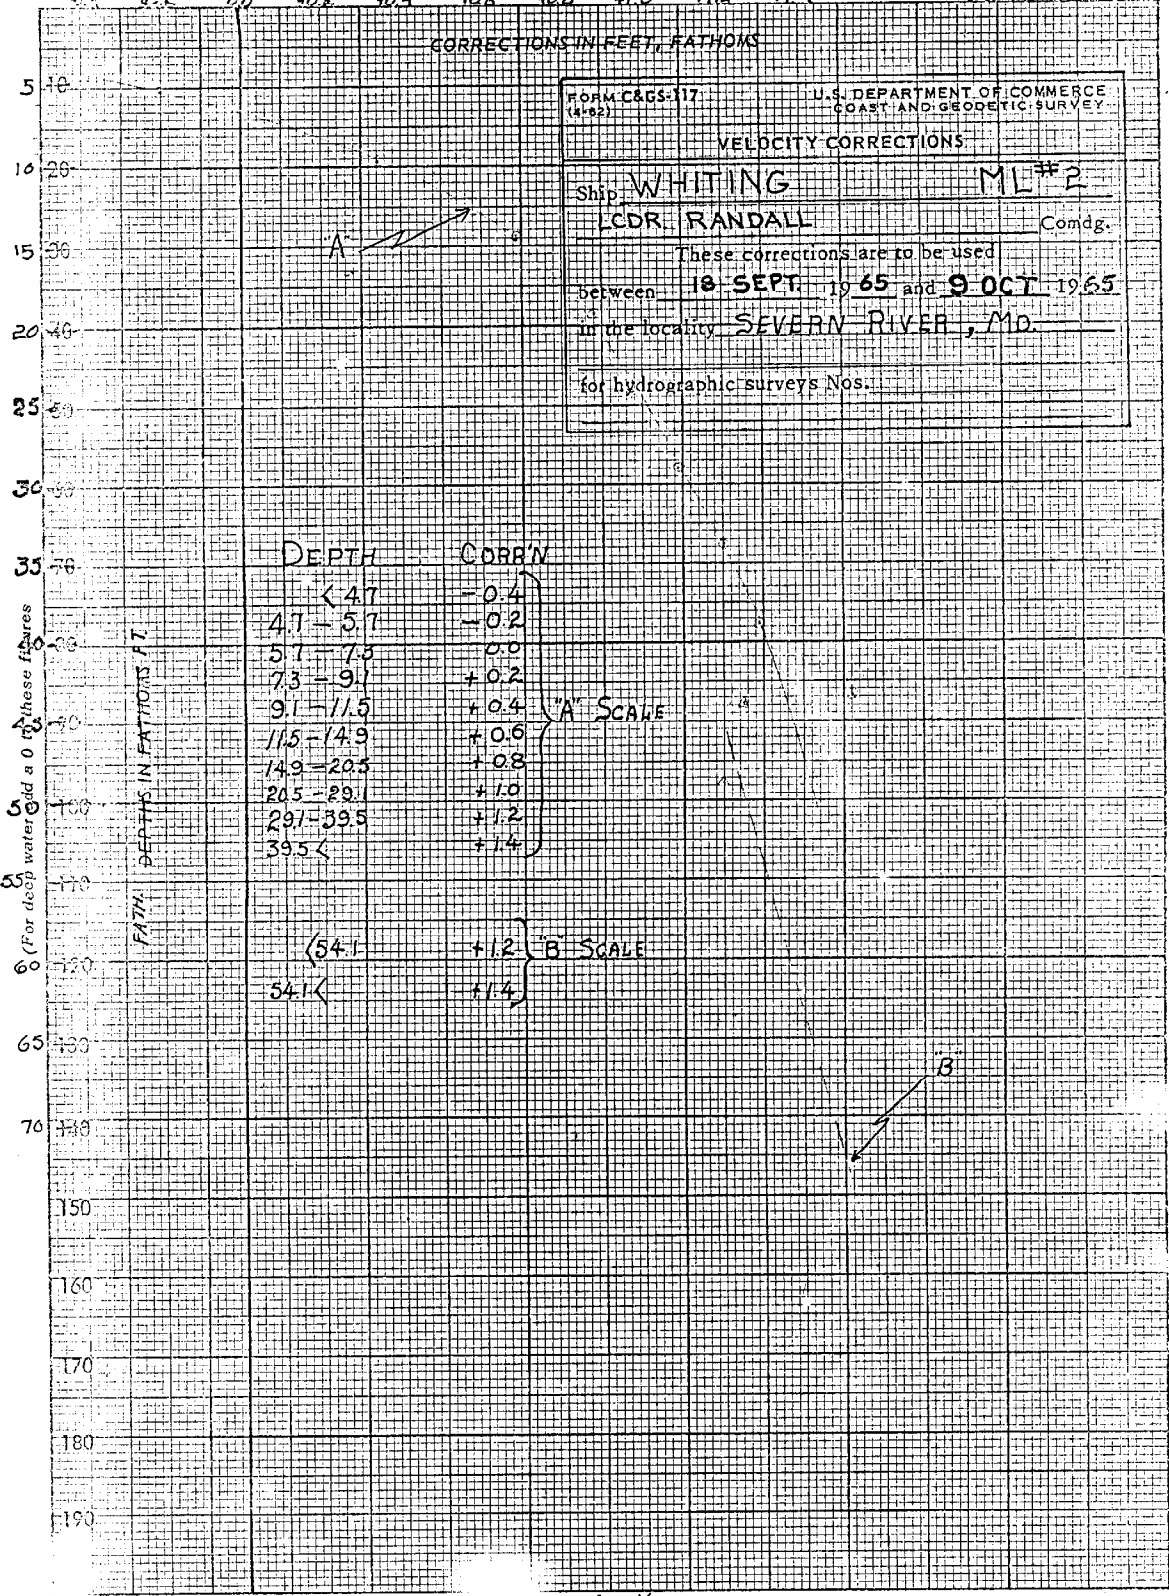 CORRECTIONS IN FEET, FATHOMS
FORM C&GS-117
(4-62)
U.S. DEPARTMENT OF COMMERCE
COAST AND GEODETIC SURVEY
VELOCITY CORRECTIONS
Ship WHITING ML#2
LCDR. RANDALL Comdg.
These corrections are to be used
between 18 SEPT. 1965 and 9 OCT 1965
in the locality SEVERN RIVER, MD.
for hydrographic surveys Nos.
"A"
5 10
10 20
15 30
20 40
25 50
30 60
35 70
55 110
60 120
65 130
70 140
150
160
170
180
190
(For deep water add a 0 to these figures
FATH. DEPTHS IN FATHOMS FT.
DEPTH CORR'N
< 4.7 - 0.4
4.7 - 5.7 - 0.2
5.7 - 7.3 0.0
7.3 - 9.1 + 0.2
9.1 - 11.5 + 0.4
"A" SCALE
11.5 - 14.9 + 0.6
14.9 - 20.5 + 0.8
20.5 - 29.1 + 1.0
29.1 - 39.5 + 1.2
39.5 < + 1.4
<54.1 +1.2 "B" SCALE
54.1< +1.4
"B"